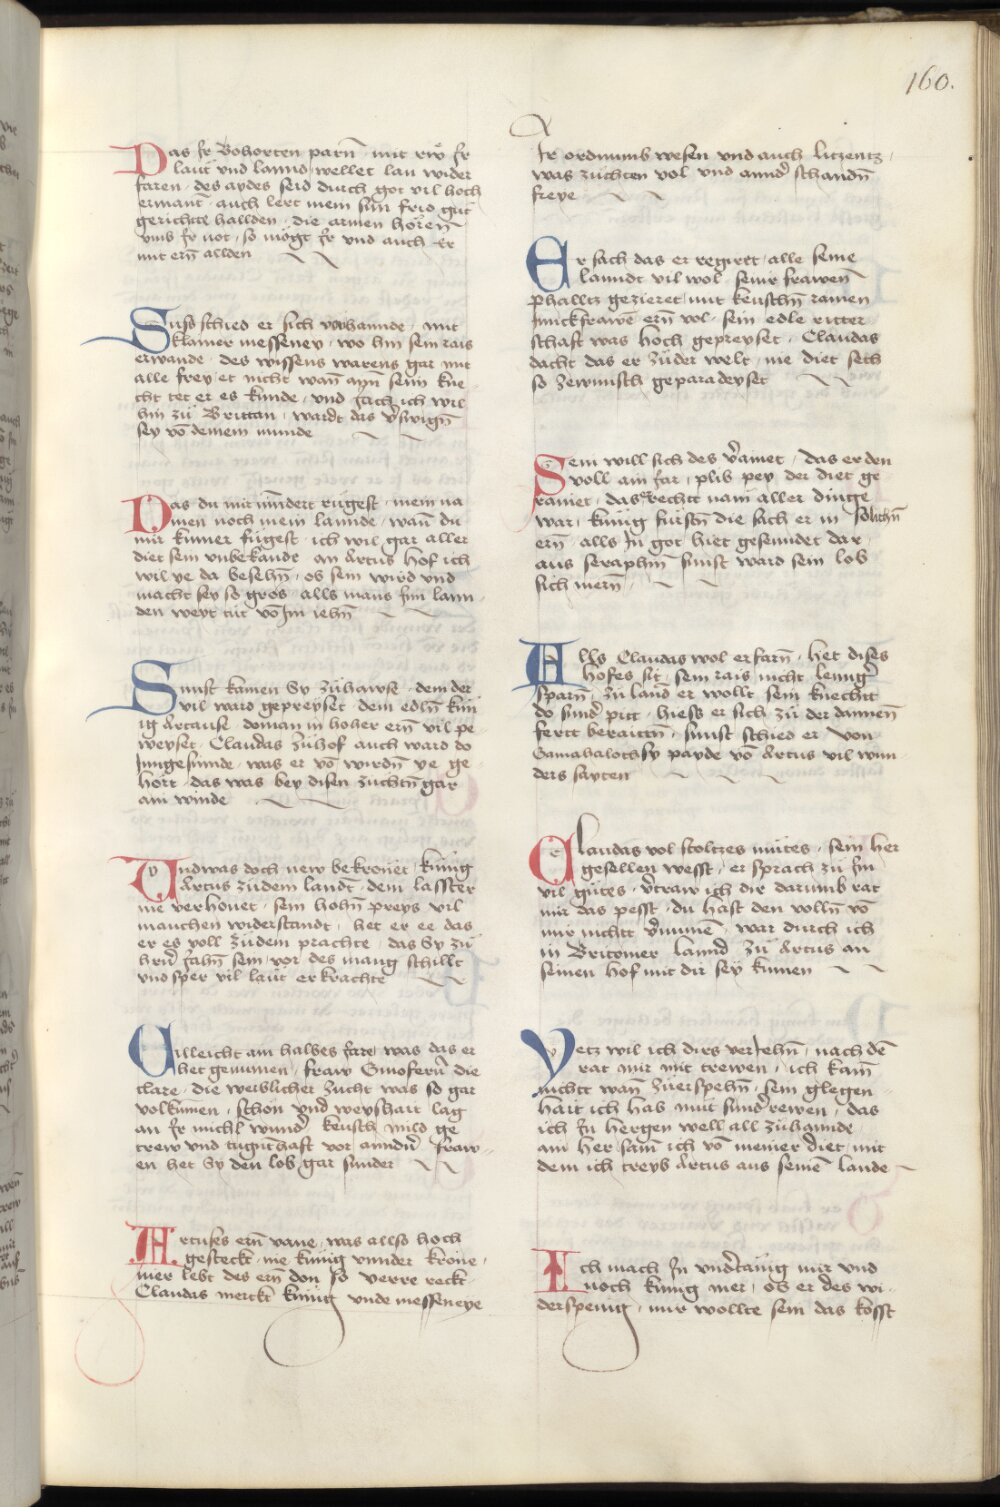 160.
Das Ir Bohorten parn̄ mit rw̄ Ir
laut vnd lannd wellet lan wider
faren · des aydes seid durch got vil hoch
ermant̄ · auch lert mein sun frid gut
gerichtt hallden · die armen hörenn̄
vmb Ir not · so mögt Ir vnd auch Er
mit ern̄ allden
Suss schied er sich vonhannde · mit
klainer messeney · wo hin sein rais
erwande · des wissens warens gar mit
alle frey er nicht wan̄ aym̄ seim kne
cht tet er es kunde · vnd sach ich wil
hin zu Brittan · wardt das v̄swign̄
sey vō deinem munde
Das du mit nīndert rügest · mein na
men noch mein lannde · wan̄ du
mir kumer fügest · ich wil gar aller
diet sein vnbekande an Artus hof ich
wil ye da besehn̄ · ob sein wird vnd
macht sey so gros · alls mans Jm lann
den weyt tut vō Jm iehn̄
Sunst kamen Sy zühawse · dem der
vil ward gepreyset · dem edln̄ kün
ig Artause · do man in hoher ern̄ vil pe
weyset · Claudas zühof auch ward do
Inngesinde · was er vō wirdn̄ ye ge
hort · das was bey disen züchtn̄ gar
am winde
Vnd was doch new bekronet · künig
Artus zu dem landt · dem lasster
nie verhonet · sein hohn̄ preys vil
manchen widerstandt · het er ee das
er es voll zü dem prachte · das Sy zü
hrn̄ Jahn̄ sein vor des mang schillt
vnd sper vil laut erkrachte
Villeicht am halbes Jare was das er
het genumen · fraw Ginofern̄ die
clare · die weiblicher zucht was so gar
volkumen · schön vnd weyshait lag
an Ir michl wund̄ keusch mild ge
trew vnd tugnthaft vor anndn̄ fraw
en het Sy den lob gar sunder
Artuses ern̄ vane · was allso hoch
gesteckt · nie künig vnnder krone ·
mer lebt des ern̄ don so verre reckt ·
Claudas merckt künig vnde messeneye
Ir ordnunb wesen vnd auch litzentz ·
was züchten vol vnd annd̄ schandn̄
freye
Er sach das er regiret · alle seine
lanndt vil wol · seinr frawenn̄
phalltz gezieret mit keuschn̄ ramen
Junckfrawē ern̄ vol · sein edle ritter
schaft was hoch gepreyset · Claudas
dacht das er züder welt · nie diet sech
so zewunsch geparadeyset
Sein will sich des v̄amet · das er den
voll ain Jar · plib pey der diet ge
ramet · das rechtt nam aller dinge
war · künig fürstn̄ die sach er in solichn̄
ern̄ · alls Jn got hiet gesenndet dar ·
aus seraphin̄ sunst ward sein lob
sich mern̄
Alls Claudas wol erfarn̄ · het dises
hofes sit · sein rais nicht lennḡ
sparn̄ · zu land er wollt sein knechtt
do sund̄ pitt · hiess er sich zü der dannen̄
fertt beraittn̄ · sunst schied er von
Gamahaloth sy payde vō Artus vil wun
ders sayten
Claudas vol stoltzes mütes · sein her
gesellen wesst · er sprach zü Jm
vil gütes · v̄traw ich dir darumb rat
mir das pesst · du hast den volln̄ vō
mir nichtt v̄numē · war durch ich
in Britonier lannd̄ zü Artus an
seinen hof mit dir sey kumen
Yetz wil ich dirs veriehn̄ · nach dē
rat mir mit trewen · ich kam̄
nichtt wan̄ züerspehn̄ · sein glegen
hait ich hab mut sund̄ rewen · das
ich Jn hergen well all zühannde
am her sam̄ ich vō meiner diet mit
dem ich treyb Artus aus seinē lande
Ich mach Jn vndtānig mir vnd
noch künig mer · ob er des wi
derspenig · mir wollte sein das kosst